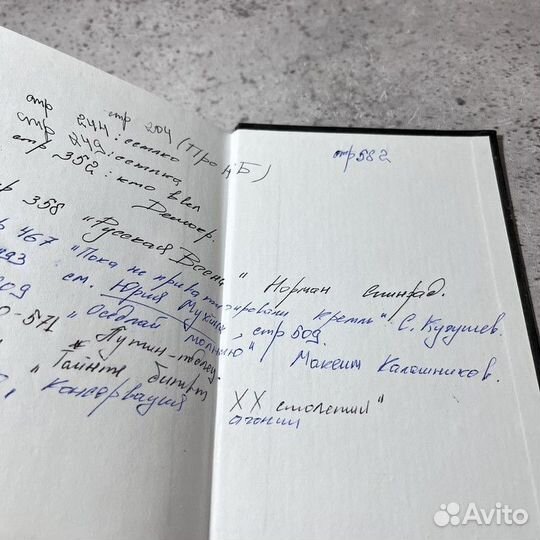 стр 204 (Про ЦБ)
стр 244: ссылка
стр 249: ссылка
стр 352: кто ввёл
Демокр.
р 358 "Русская Весна" Норман Спинрад.
467 "Пока не приватизировали Кремль" С. Кугушев.
см. Юрия Мухина, стр 509.
0-571 "Оседлай молнию" Максим Калашников.
Путин-
"Тайны битвы XX столетия"
Консервация агонии
стр 582
Avito